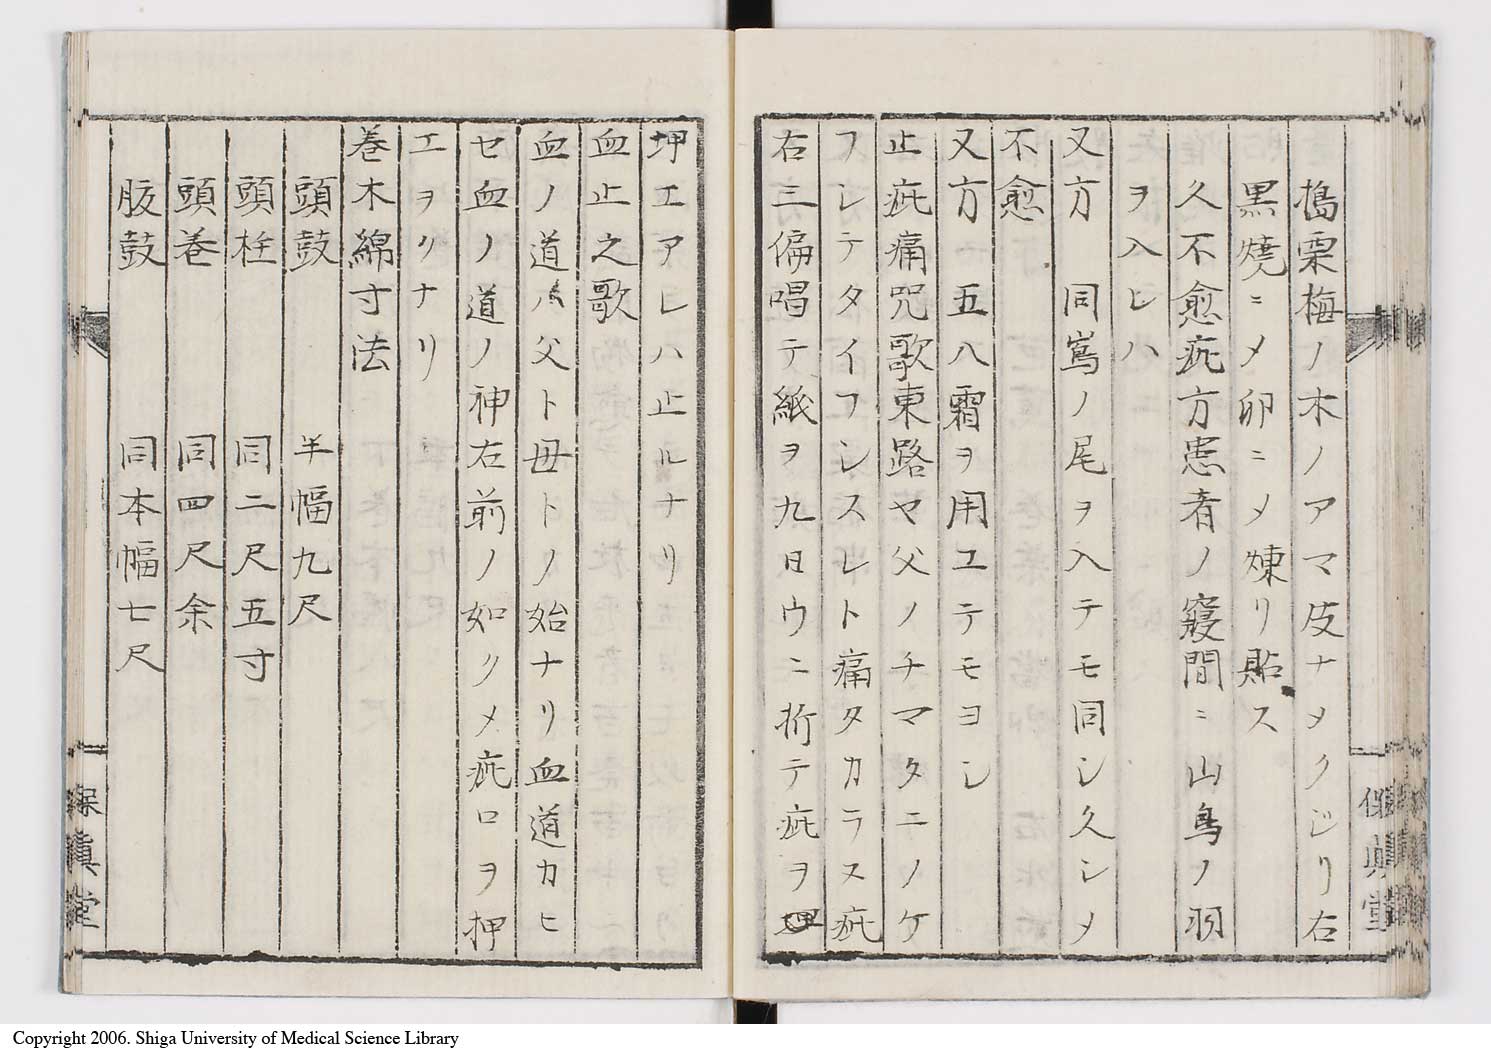 搗栗梅ノ木ノアマ皮ナメクジリ右
黒燒ニメ卵ニメ煉リ貼ス
久不愈疵方患者ノ寢間ニ山鳥ノ羽
ヲ入レハ
又方 同嶌ノ尾ヲ入テモ同シ久シメ
不愈
又方 五八霜ヲ用ユテモヨシ
止疵痛咒歌東路ヤ父ノチマタニノケ
フシテタイフシスレト痛タカラス疵
右三偏唱テ紙ヲ九日ウニ折テ疵ヲ
押エアレハ止ルナリ
血止之歌
血ノ道ハ父ト母トノ始ナリ血道カヒ
セ血ノ道ノ神右前ノ如クメ疵口ヲ押
エヲリナリ
巻木綿寸法
頭鼓 半幅九尺
頭柱 同二尺五寸
頭巻 同四尺余
肢鼓 同本幅七尺
保眞堂
保眞堂
Copyright 2006. Shiga University of Medical Science Library